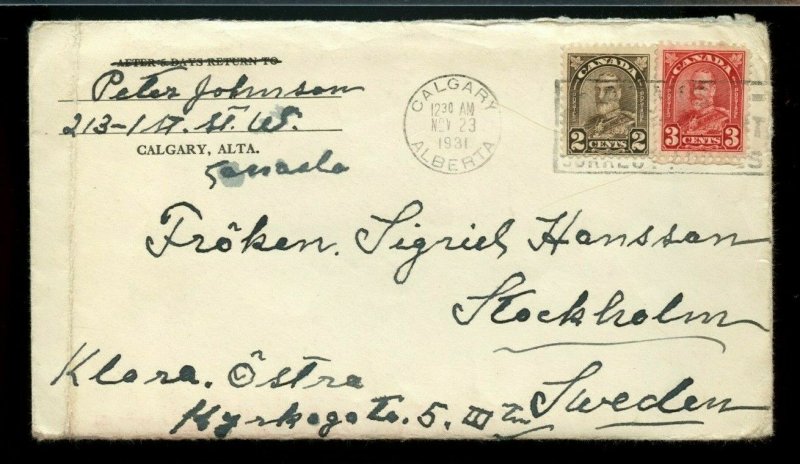 AFTER 5 DAYS RETURN TO
Peter Johnson
213-1 St. W.
CALGARY, ALTA.
Canada
CALGARY
12 30 AM
NOV 23
1931
ALBERTA
CANADA
2 CENTS 2
CANADA
3 CENTS 3
Fröken. Sigrid Hansson
Stockholm
Klara. Östra
Kyrkogata. 5. III
Sweden